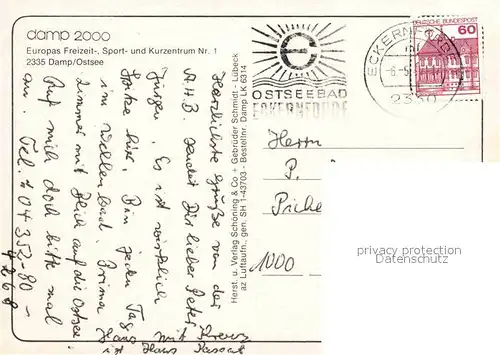 damp 2000
Europas Freizeit-, Sport- und Kurzentrum Nr. 1
2335 Damp/Ostsee
Herzlichste Grüße von der
sendet Dir lieber Peter
Jürgen. Es ist wirklich
Spitze hier. Bin jeden Tag
im Wellenbad. Prima
Zimmer mit Blick auf die Ostsee.
Ruf mich doch bitte mal
an. Tel. 04352-80-
Haus mit Kreuz
ist Haus Passat
Herst. u. Verlag Schöning & Co + Gebrüder Schmidt - Lübeck
az Luftaufn., gen. SH 1-43703 - Bestellnr. Damp LK 6314
e
OSTSEEBAD
ECKERNFÖRDE
ECKERNFÖRDE
2330
DEUTSCHE BUNDESPOST
60
Herrn
P.
1000
privacy protection
Datenschutz